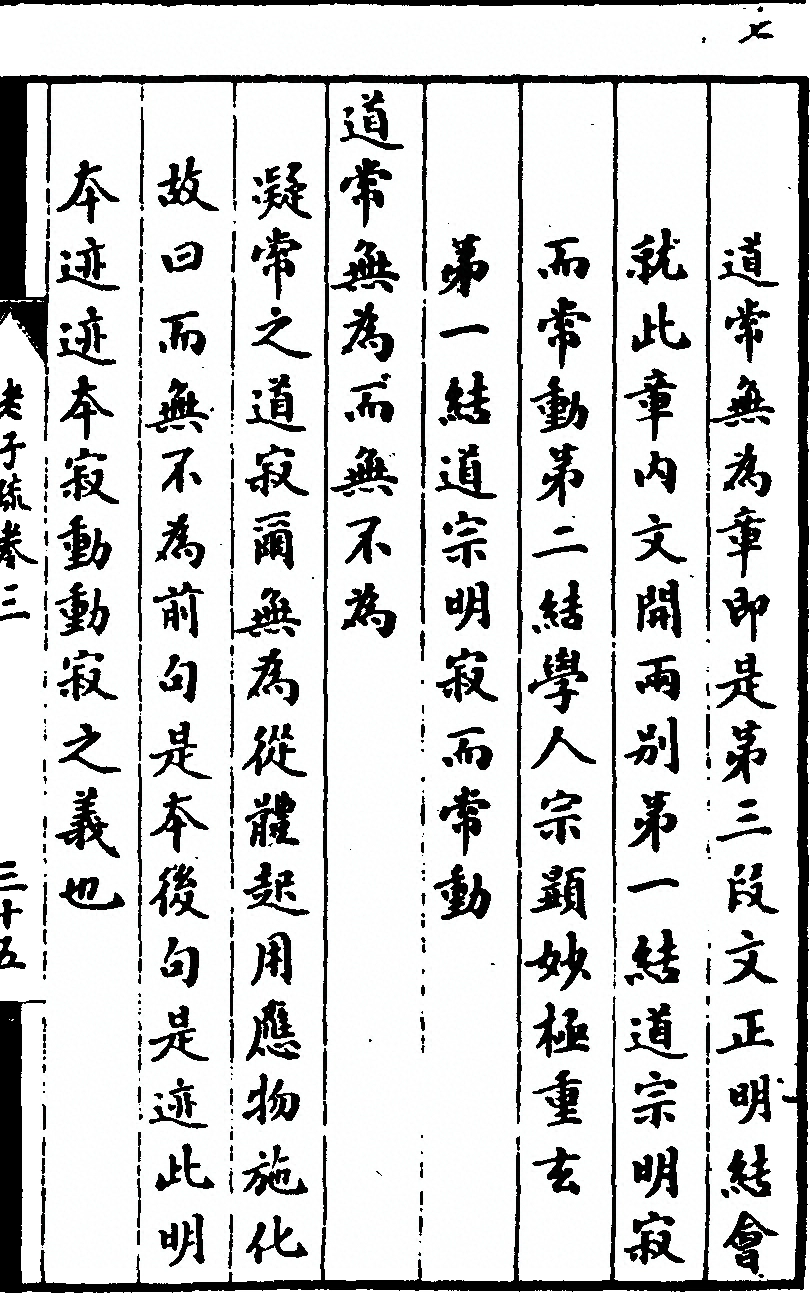 道常無為章即是第三段文正明結會
就此章内文開兩別第一結道宗明寂
而常動第二結學人宗顯妙極重玄
第一結道宗明寂而常動
道常無為而無不為
凝常之道寂爾無為從體起用應物施化
故曰而無不為前句是本後句是迹此明
本迹迹本寂動動寂之義也
老子疏卷三
三十五